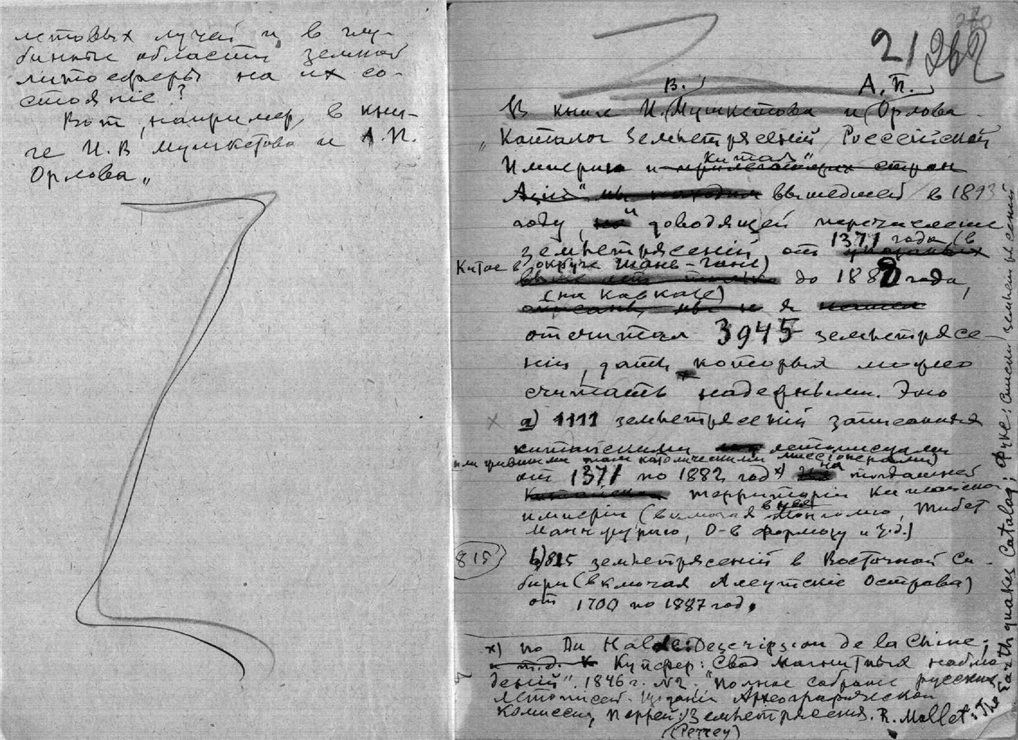 летовых лучей и в глу-
бинные области земной
литосферы на их со-
стояніе?
Вот, например, в кни-
ге И.В Мушкетова и А.П.
Орлова„
270
21 262
В. А.П.
В книге И. Мушкетова и Орлова
„Каталог Землетрясений Российской
Империи и прилегающих стран
Китая"
Азии" вышедшей в 1893
году, и доводящей перечисление
землетрясений от
1371 года (в
Китае в округе Шань-Гани)
до 1882 года,
(на Кавказе)
я
отсчитал 3945 землетрясе-
ній, даты которых можно
считать надежными. Это
a) 1111 землетрясеній записанныя
китайскими летописцами
или жившими там католическими миссионерами)
от 1371 по 1882 год x) на тогдашней
территоріи Китайской
имперіи (включая Монголию, Тибет
Манчжурию, О-в Формозу и т.д.)
815 b) 815 землетрясеній в Восточной Си-
бири (включая Алеутскіе Острова)
от 1700 по 1887 год.
x) по Du Halde: Descripsion de la Chine;
и т.д. Купфер: Свод Магнитных наблю
дений" 1846 г. N2. "Полное собрание русских
летописей. Изданіе Археографической
Комиссии Перрей: Землетрясения. R. Mallet: The
(Perrey)
Earth quakes Catalog; Фукс: Списки землетрясений